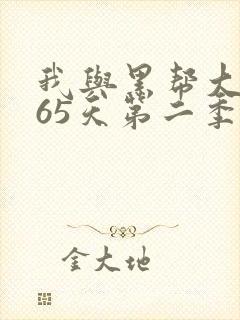 我與黑帮大
65天第二季
金大地